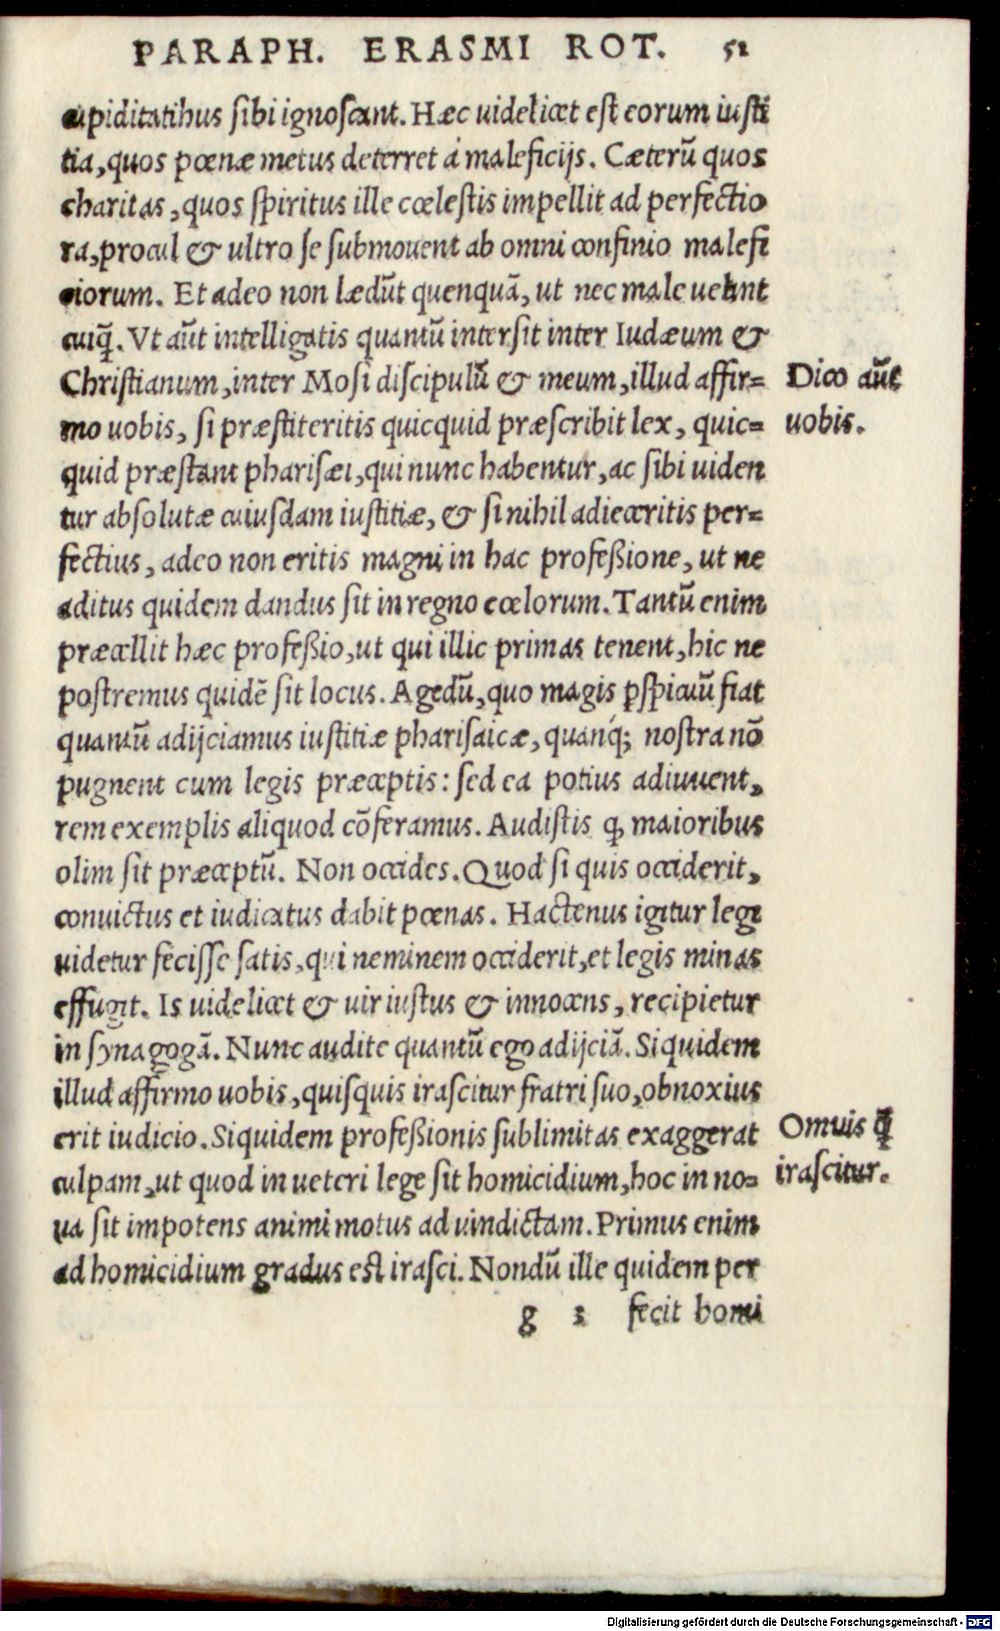 PARAPH. ERASMI ROT. 51
cupiditatibus sibi ignoscant. Hæc uidelicet est eorum iusti
tia, quos pœnæ metus deterret à maleficijs. Cæterũ quos
charitas, quos spiritus ille cœlestis impellit ad perfectio
ra, procul & ultro se submouent ab omni confinio malefi
ciorum. Et adeo non lædũt quenquã, ut nec male uelint
cuiq̃. Vt aũt intelligatis quantũ intersit inter Iudæum &
Christianum, inter Mosi discipulũ & meum, illud affir=
mo uobis, si præstiteritis quicquid præscribit lex, quic=
quid præstant pharisæi, qui nunc habentur, ac sibi uiden
tur absolutæ cuiusdam iustitiæ, & si nihil adieceritis per=
fectius, adeo non eritis magni in hac professione, ut ne
aditus quidem dandus sit in regno cœlorum. Tantũ enim
præcellit hæc professio, ut qui illic primas tenent, hic ne
postremus quidẽ sit locus. Agedũ, quo magis ꝑspicuũ fiat
quantũ adijciamus iustitiæ pharisaicæ, quanq́; nostra nõ
pugnent cum legis præceptis: sed ea potius adiuuent,
rem exemplis aliquod cõferamus. Audistis ꝙ maioribus
olim sit præceptũ. Non occides. Quod si quis occiderit,
conuictus et iudicatus dabit pœnas. Hactenus igitur legi
uidetur fecisse satis, qui neminem occiderit, et legis minas
effugit. Is uidelicet & uir iustus & innocens, recipietur
in synagogã. Nunc audite quantũ ego adijciã. Siquidem
illud affirmo uobis, quisquis irascitur fratri suo, obnoxius
erit iudicio. Siquidem professionis sublimitas exaggerat
culpam, ut quod in ueteri lege sit homicidium, hoc in no=
ua sit impotens animi motus ad uindictam. Primus enim
ad homicidium gradus est irasci. Nondũ ille quidem per
g 3 fecit homi
Dico aũt
uobis.
Omnis q̃
irascitur.
Digitalisierung gefördert durch die Deutsche Forschungsgemeinschaft - DFG